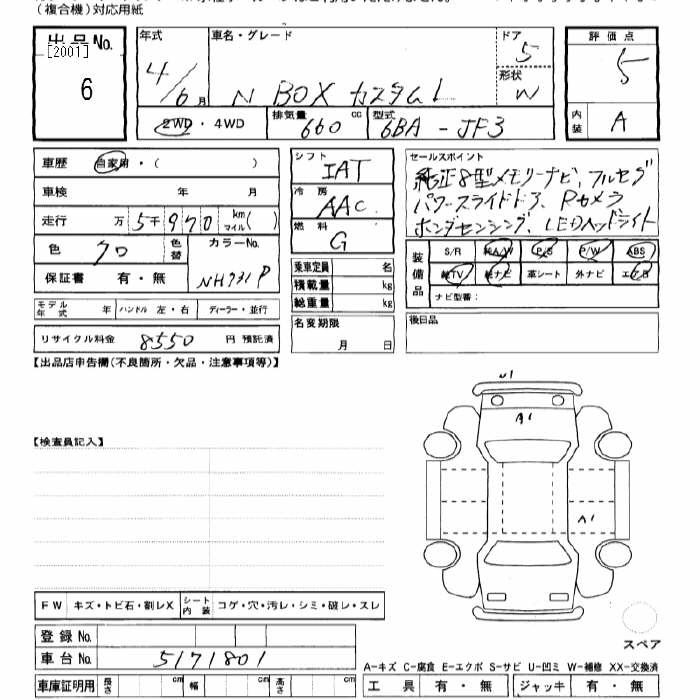 (複合機)対応用紙
出品No.
[2001]
6
年式
4/6月
車名・グレード
N BOX カスタムL
ドア
5
形状
W
評価点
5
2WD・4WD
排気量 660 cc
型式 6BA-JF3
内装
A
車歴 自家用・( )
車検 年 月
走行 万5千970 km マイル( )
色 クロ 色替
カラーNo.
NH731P
保証書 有・無
モデル年式 年 ハンドル 左・右 ディーラー・並行
リサイクル料金 8550 円 預託済
シフト
IAT
冷房
AAC
燃料
G
乗車定員 名
積載量 kg
総重量 kg
名変期限
月 日
セールスポイント
純正8型メモリーナビ、フルセグ
パワースライドドア、Rカメラ
ホンダセンシング、LEDヘッドライト
装備品
S/R 純A/W P/S P/W ABS
純TV 純ナビ 革シート 外ナビ エアB
ナビ型番:
後日品
【出品店申告欄(不良箇所・欠品・注意事項等)】
【検査員記入】
A1
A1
FW キズ・トビ石・割レX シート内装 コゲ・穴・汚レ・シミ・破レ・スレ
登録No.
車台No. 5171801
車庫証明用 長さ cm 幅 cm 高さ cm
スペア
A-キズ C-腐食 E-エクボ S-サビ U-凹ミ W-補修 XX-交換済
工具 有・無 ジャッキ 有・無